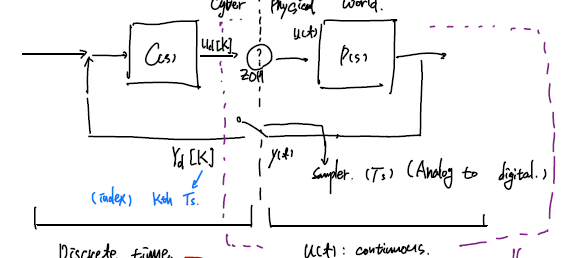 Cyber Physical World.
C(s)
Ud[K]
?
ZOH
u(t)
P(s)
Yd[K]
y(t)
Sampler. (Ts) (Analog to digital.)
(index) Kth Ts.
Discrete time.
u(t): continuous.